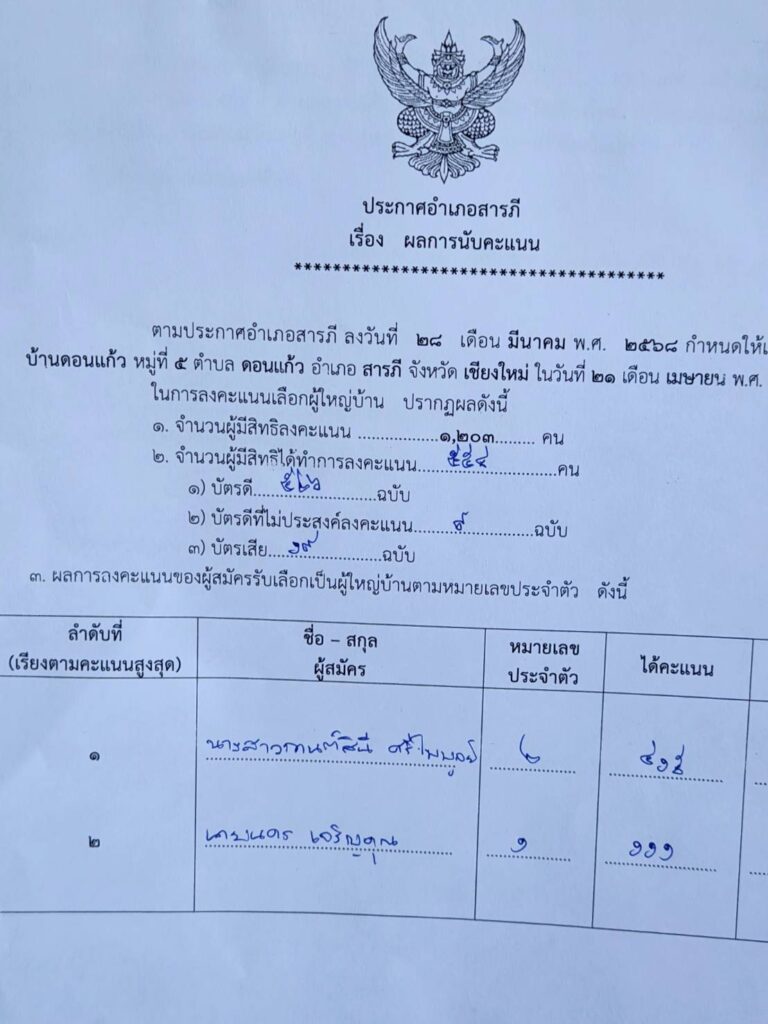 ประกาศอำเภอสารภี
เรื่อง ผลการนับคะแนน
**************************************
ตามประกาศอำเภอสารภี ลงวันที่ ๒๘ เดือน มีนาคม พ.ศ. ๒๕๖๘ กำหนดให้เ
บ้านดอนแก้ว หมู่ที่ ๕ ตำบล ดอนแก้ว อำเภอ สารภี จังหวัด เชียงใหม่ ในวันที่ ๒๑ เดือน เมษายน พ.ศ.
ในการลงคะแนนเลือกผู้ใหญ่บ้าน ปรากฏผลดังนี้
๑. จำนวนผู้มีสิทธิลงคะแนน ................๑,๒๐๓......... คน
๒. จำนวนผู้มีสิทธิได้ทำการลงคะแนน......๕๕๔.................คน
๑) บัตรดี......๕๒๖..............ฉบับ
๒) บัตรดีที่ไม่ประสงค์ลงคะแนน........๙..............ฉบับ
๓) บัตรเสีย....๑๙..............ฉบับ
๓. ผลการลงคะแนนของผู้สมัครรับเลือกเป็นผู้ใหญ่บ้านตามหมายเลขประจำตัว ดังนี้
ลำดับที่
(เรียงตามคะแนนสูงสุด)
ชื่อ – สกุล
ผู้สมัคร
หมายเลข
ประจำตัว
ได้คะแนน
๑ นางสาวกานต์สินี ศรีไพบูลย์ ๒ ๔๑๕
๒ นายนคร เจริญคุณ ๑ ๑๑๑